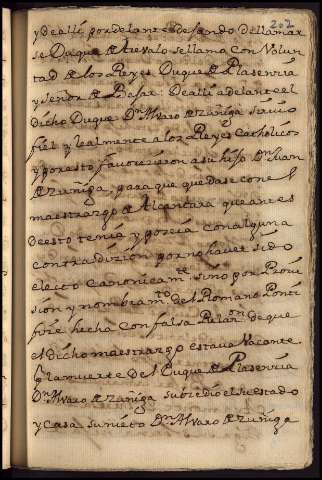 202
y de alli por delante dejando de llamar
se Duque de Arevalo se llama con Volun
tad de los Reyes Duque de Plasencia
y señor de Bejar: De alli adelante el
dicho Duque Dn Alvaro de Zuñiga sirvio
fiel y lealmente a los Reyes Catholicos
y por esto favorecieron a su hijo Dn Juan
de Zuñiga, para que quedase con el
maestrazgo de Alcantara que antes
de esto tenia y poseia con alguna
contradizion por no haver sido
electo canonicamte sino por Provi
sion y nombramto del Romano Ponti
fice hecha con falsa Relaon de que
el dicho maestrazgo estava Vacante
Por la muerte del Duque de Plasencia
Dn Alvaro de Zuñiga subcedio el su estado
y Casa su nieto Dn Alvaro de Zuñiga